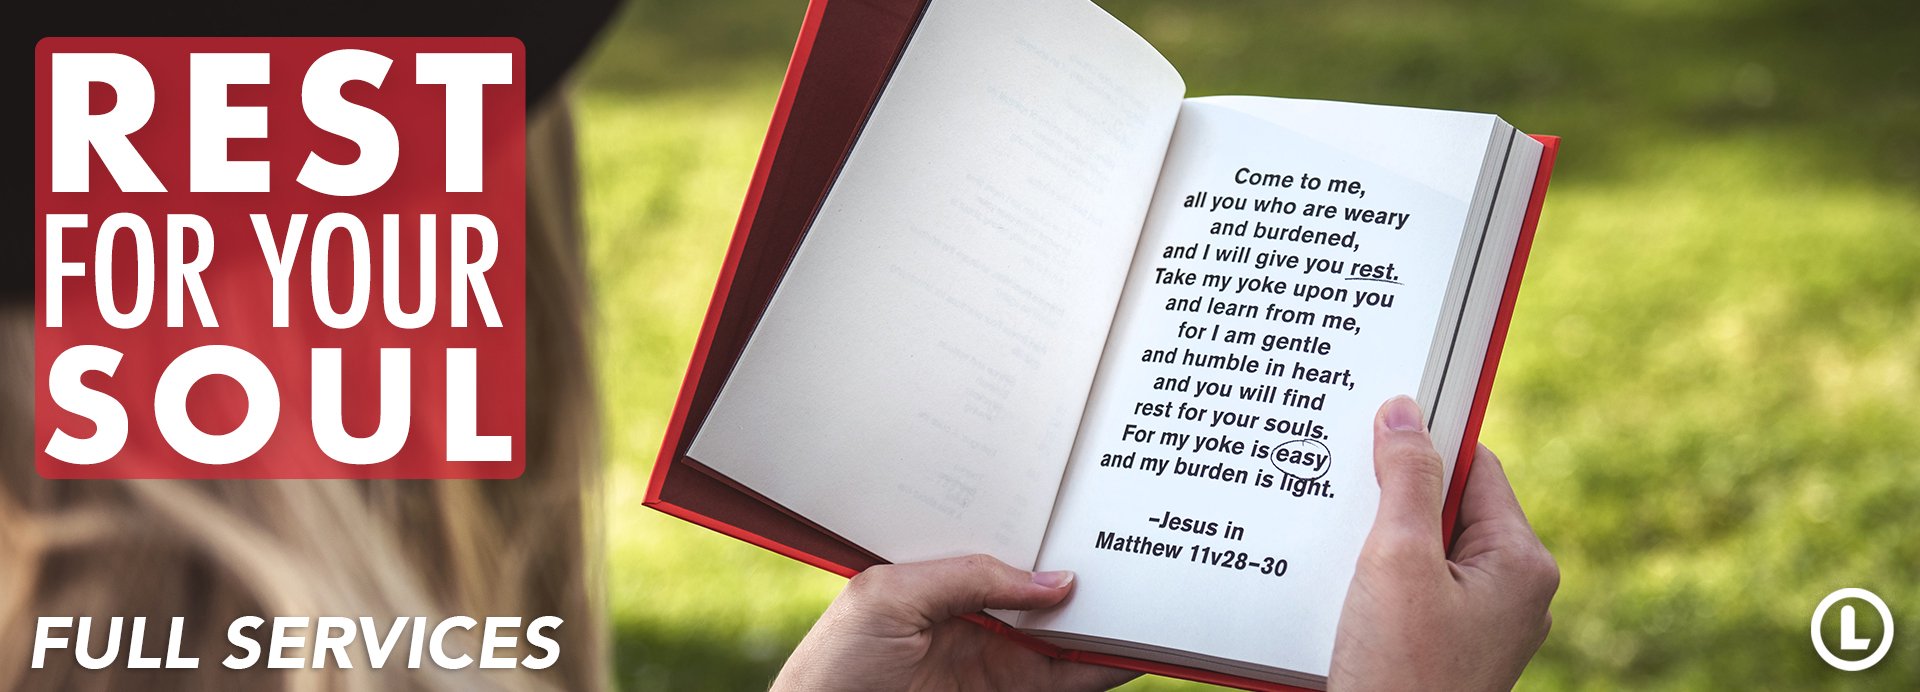 REST
FOR YOUR
SOUL
FULL SERVICES
Come to me,
all you who are weary
and burdened,
and I will give you rest.
Take my yoke upon you
and learn from me,
for I am gentle
and humble in heart,
and you will find
rest for your souls.
For my yoke is easy
and my burden is light.
–Jesus in
Matthew 11v28–30
L